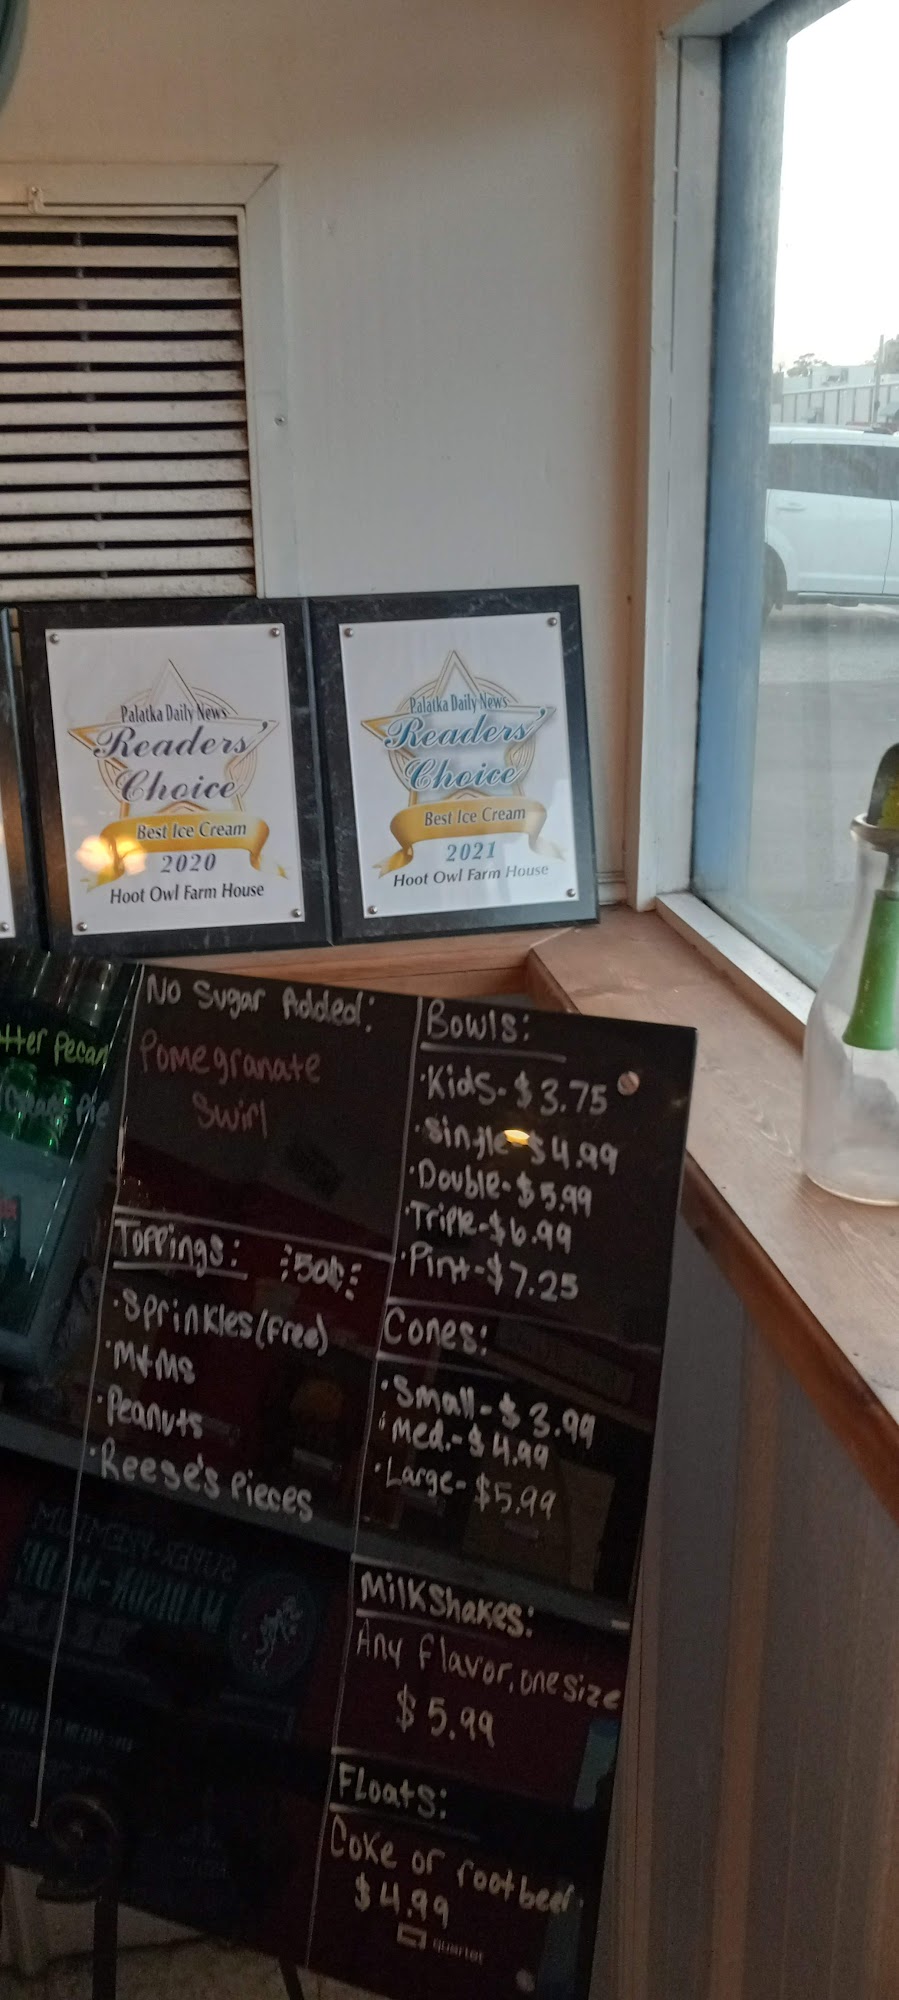 Palatka Daily News
Readers'
Choice
Best Ice Cream
2020
Hoot Owl Farm House
Palatka Daily News
Readers'
Choice
Best Ice Cream
2021
Hoot Owl Farm House
Pecan
Pie
No Sugar Added:
Pomegranate
Swirl
Toppings: 50¢
·Sprinkles (free)
·M&Ms
·Peanuts
·Reese's Pieces
Bowls:
·Kids-$3.75
·Single-$4.99
·Double-$5.99
·Triple-$6.99
·Pint-$7.25
Cones:
·Small-$3.99
·Med.-$4.99
·Large-$5.99
MilkShakes:
Any flavor, one size
$5.99
Floats:
Coke or root beer.
$4.99
quartet